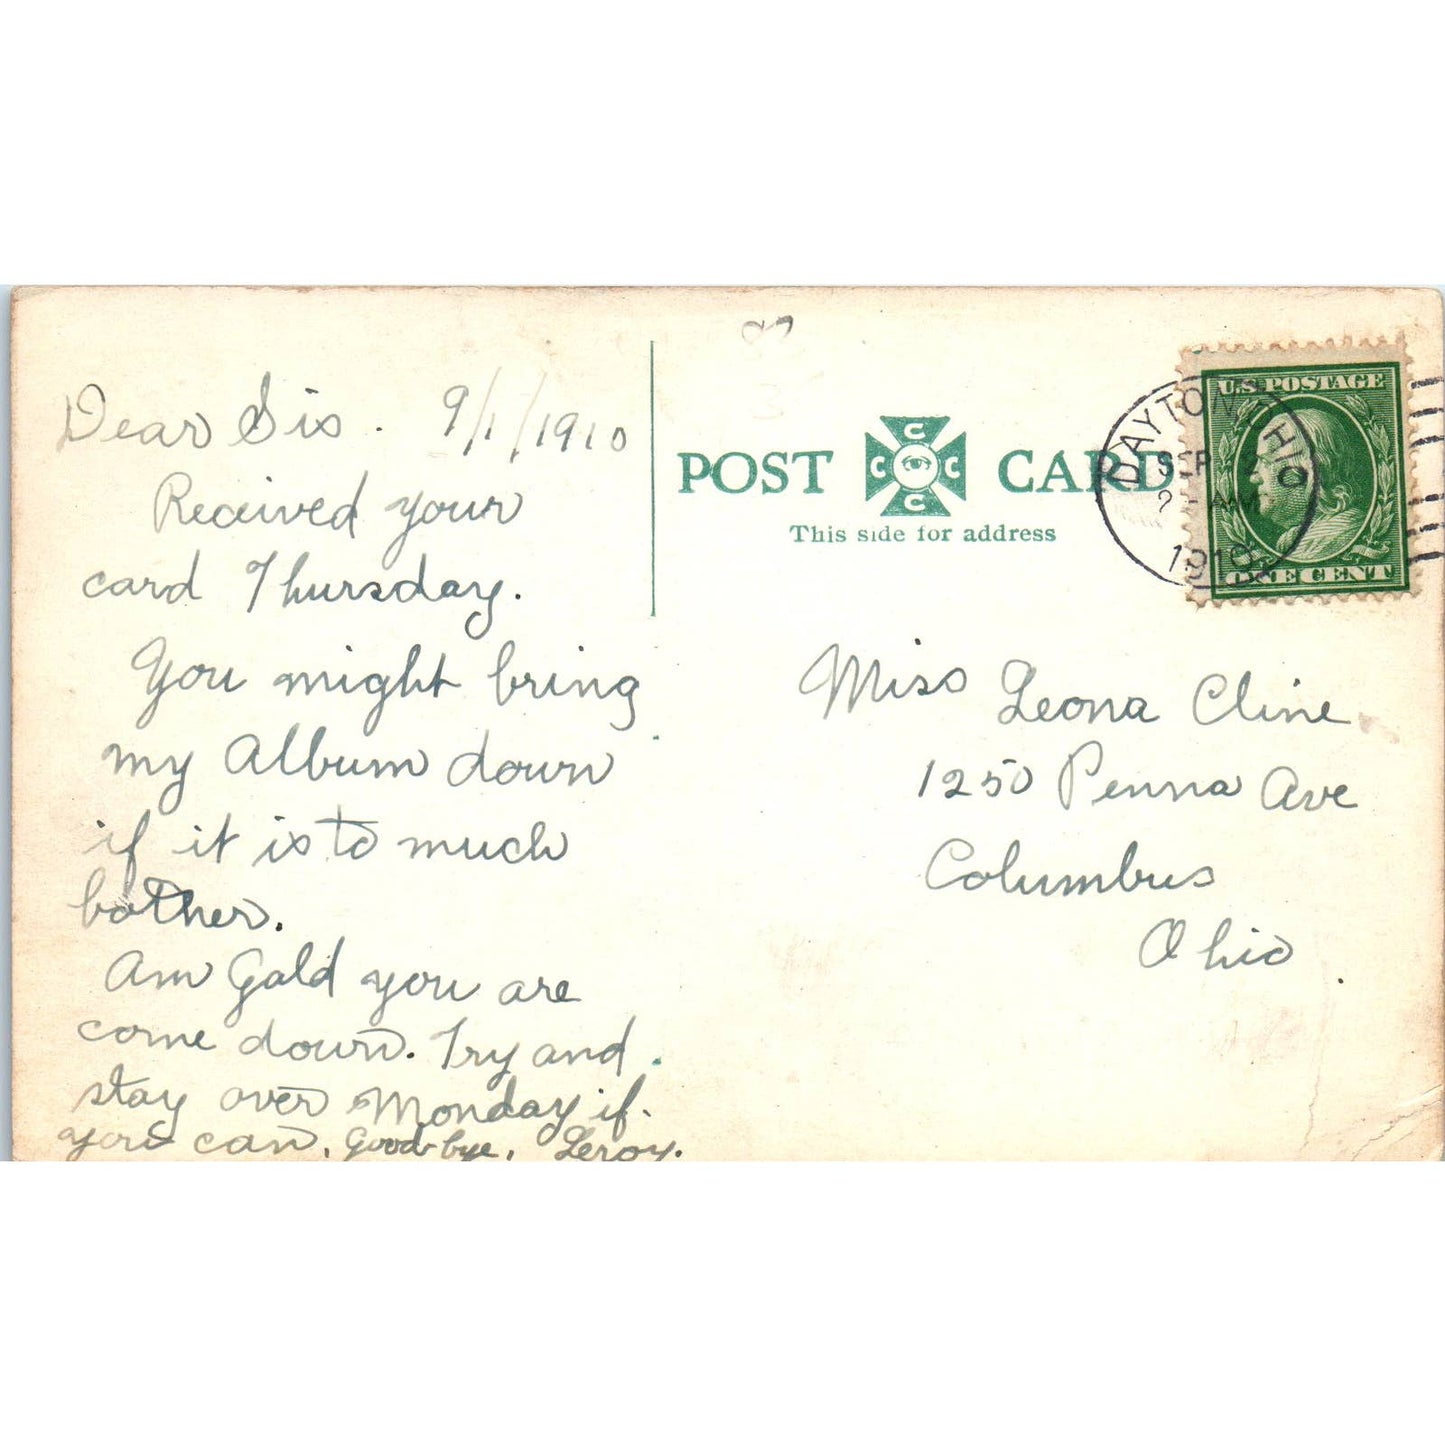 Dear Sis. 9/1/1910
Received your
card Thursday.
You might bring
my Album down
if it is to much
bother.
Am Gald you are
come down. Try and
stay over Monday if
you can. Good-bye. Leroy.
POST CARD
C C C C
This side for address
DAYTON OHIO
SEP
AM
1910
U.S. POSTAGE
ONE CENT
Miss Leona Cline
1250 Penna Ave
Columbus
Ohio.